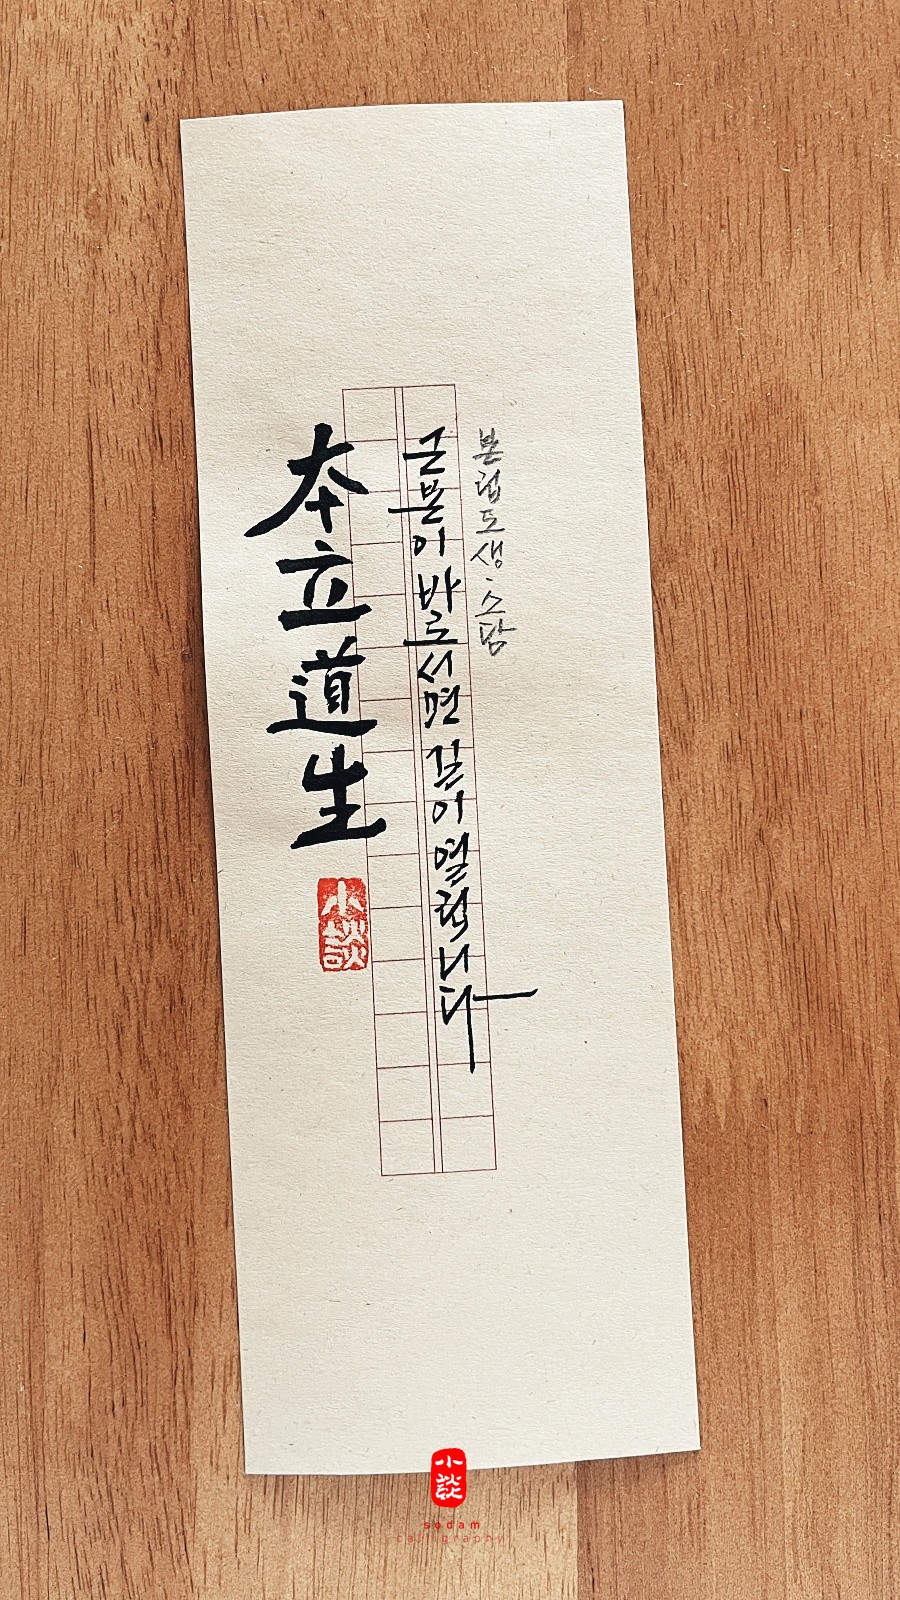 本立道生
小談
근본이 바로서면 길이 열립니다
본립도생·소담
小談
sodam
calligraphy